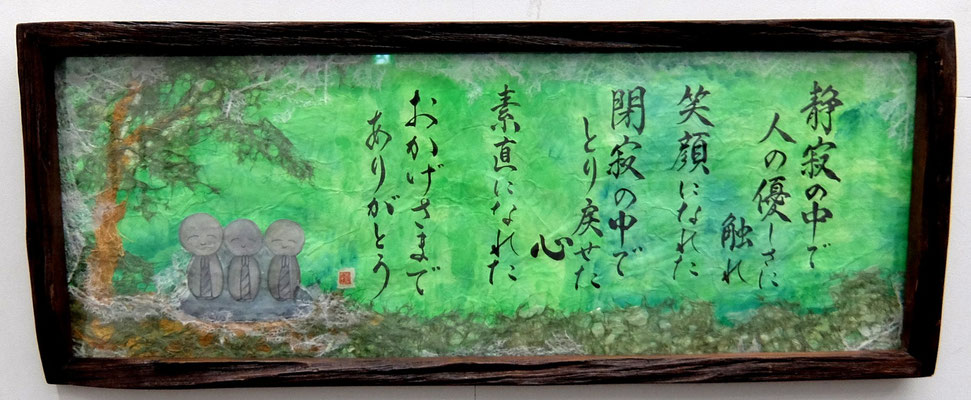 静寂の中で
人の優しさに
触れ
笑顔になれた
閑寂の中で
とり戻せた
心
素直になれた
おかげさまで
ありがとう